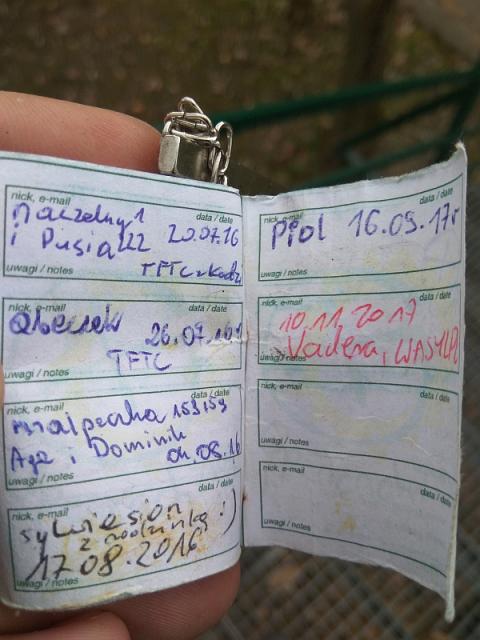 nick, e-mail data / date
naczelny1
i Pusia122 20.07.16
uwagi / notes TFTC z
nick, e-mail data / date
26.07.16
TFTC
uwagi / notes
nick, e-mail data / date
małpeczka 153153
Aga i Dominik
04.08.16
uwagi / notes
nick, e-mail data / date
sylwiesion
z rodzinką :)
17 08.2016
uwagi / notes
nick, e-mail data / date
Piol 16.09.17r
uwagi / notes
nick, e-mail data / date
10.11.2017
Vadera, WASYLPL
uwagi / notes
nick, e-mail data / date
uwagi / notes
nick, e-mail data / date
uwagi / notes